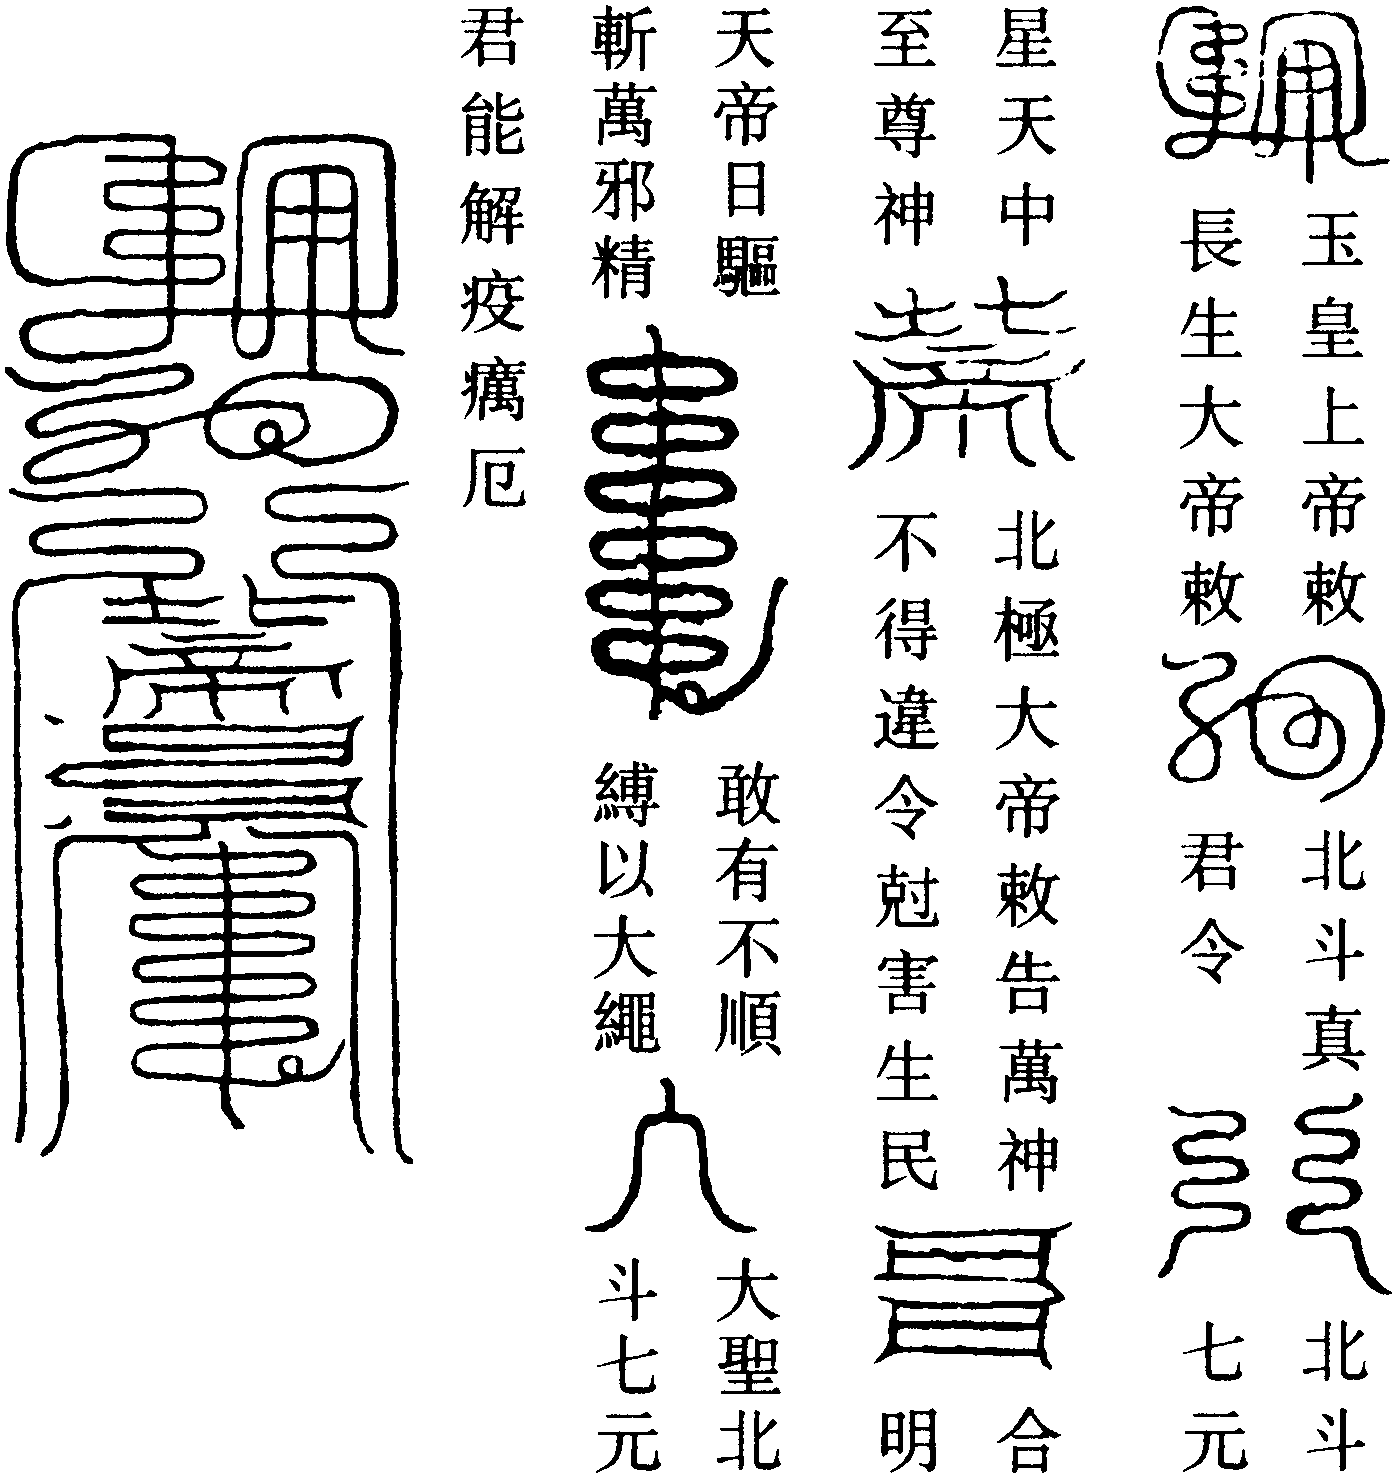 玉皇上帝敕
長生大帝敕
北斗真
君令
北斗
七元
星天中
至尊神
北極大帝敕告萬神
不得違令尅害生民
合
明
天帝日驅
斬萬邪精
敢有不順
縛以大繩
大聖北
斗七元
君能解疫癘厄